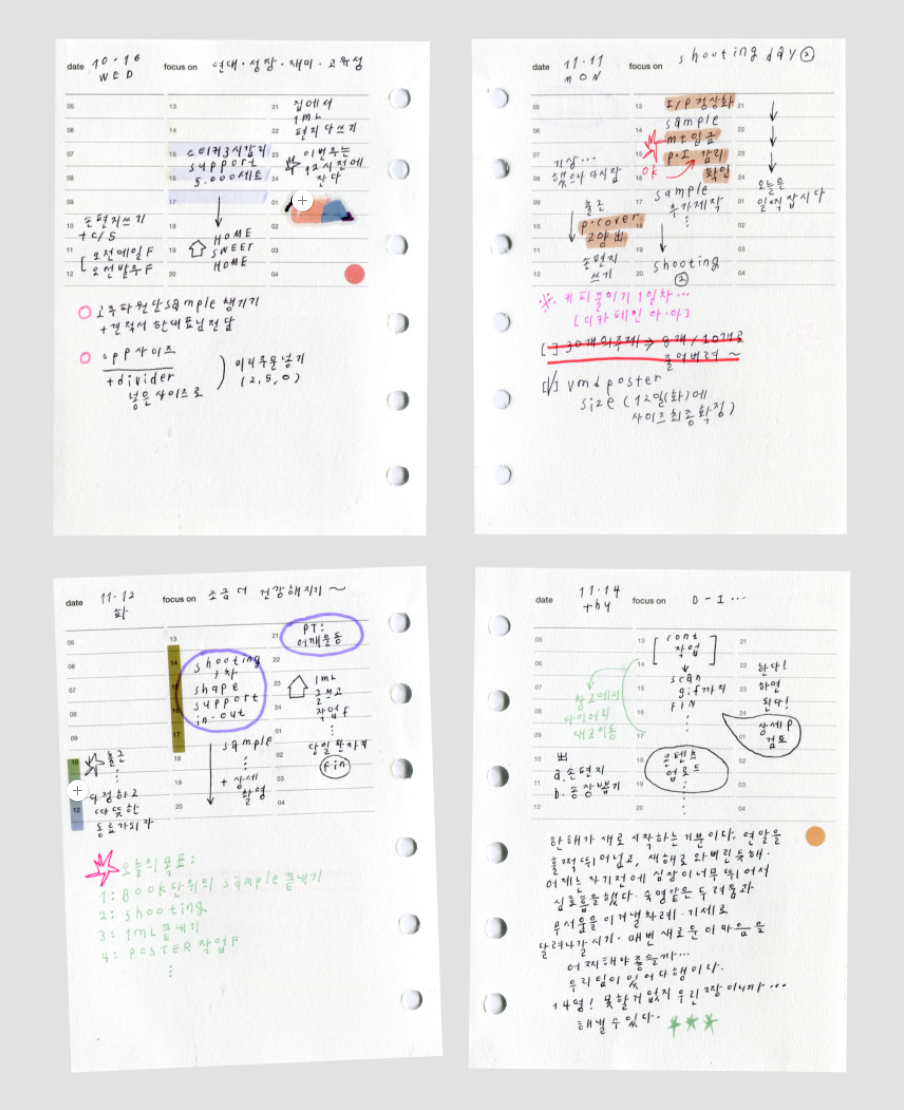 date 10·16 WED
focus on 연대·성장·재미·고유성
05
06
07
08
09
10
11
12
13
14
15
16
17
18
19
20
21
22
23
24
01
02
03
04
손편지쓰기
+ C/S
[ 오전메일 F
오전발주 F
스티커 3시감리
support
5.000세트
HOME
SWEET
HOME
집에서
1mL
편지 다쓰기
이번주는
12시전에
잔다
고주파원단 sample 챙기기
+ 견적서 한대표님전달
opp 사이즈
+ divider
넣은 사이즈로
미리주문넣기
(2, 5, 0)
date 11·11 MON
focus on shooting day ②
05
06
07
08
09
10
11
12
13
14
15
16
17
18
19
20
21
22
23
24
01
02
03
04
기상...
했으나 다시잠
출근
p·cover
고양 出
손편지
쓰기
I/P 정상화
sample
mㅜ입금
P·I 감리
확인
OK
sample
추가제작
shooting
②
오늘은
일찍 잡시다
※ 커피줄이기 1일차...
[디카페인 아·아]
[ ] 30개의주제 → 8개 / 10개로
줄여버려 ~
[✓] vmd poster
size (12일(화)에
사이즈최종확정)
date 11·12 화
focus on 조금 더 건강해지기 ~
05
06
07
08
09
10
11
12
13
14
15
16
17
18
19
20
21
22
23
24
01
02
03
04
출근
다정하고
따뜻한
동료가되자
shooting
3차
shape
support
in-out
sample
+ 상세
촬영
PT:
어깨운동
1mL
고쳐고
작업 f
당일
fin
오늘의목표:
1: BOOK단위의 sample 끝내기
2: shooting
3: 1mL 끝내기
4: POSTER 작업 F
date 11·14 thu
focus on D-1...
05
06
07
08
09
10
11
12
13
14
15
16
17
18
19
20
21
22
23
24
01
02
03
04
창고에서
다이어리
새로이동
出
a. 손편지
b. 송장뽑기
[ cont
작업 ]
scan
gif까지
FIN
콘텐츠
업로드
한다!
하면
된다!
상세 P
검토
한해가 새로 시작하는 기분이다. 연말을
훌쩍 뛰어넘고, 새해로 와버린듯해.
어제는 자기전에 심장이너무 뛰어서
심호흡을했다. 숙명같은 두려움과
무서움을 이겨낼차례. 기세로
달려나갈시기. 매번 새로운 이 마음을
어찌해야좋을까...
우리팀이 있어다행이다.
14명! 못할거 없지 우린 짱이니까...
해낼수있다.